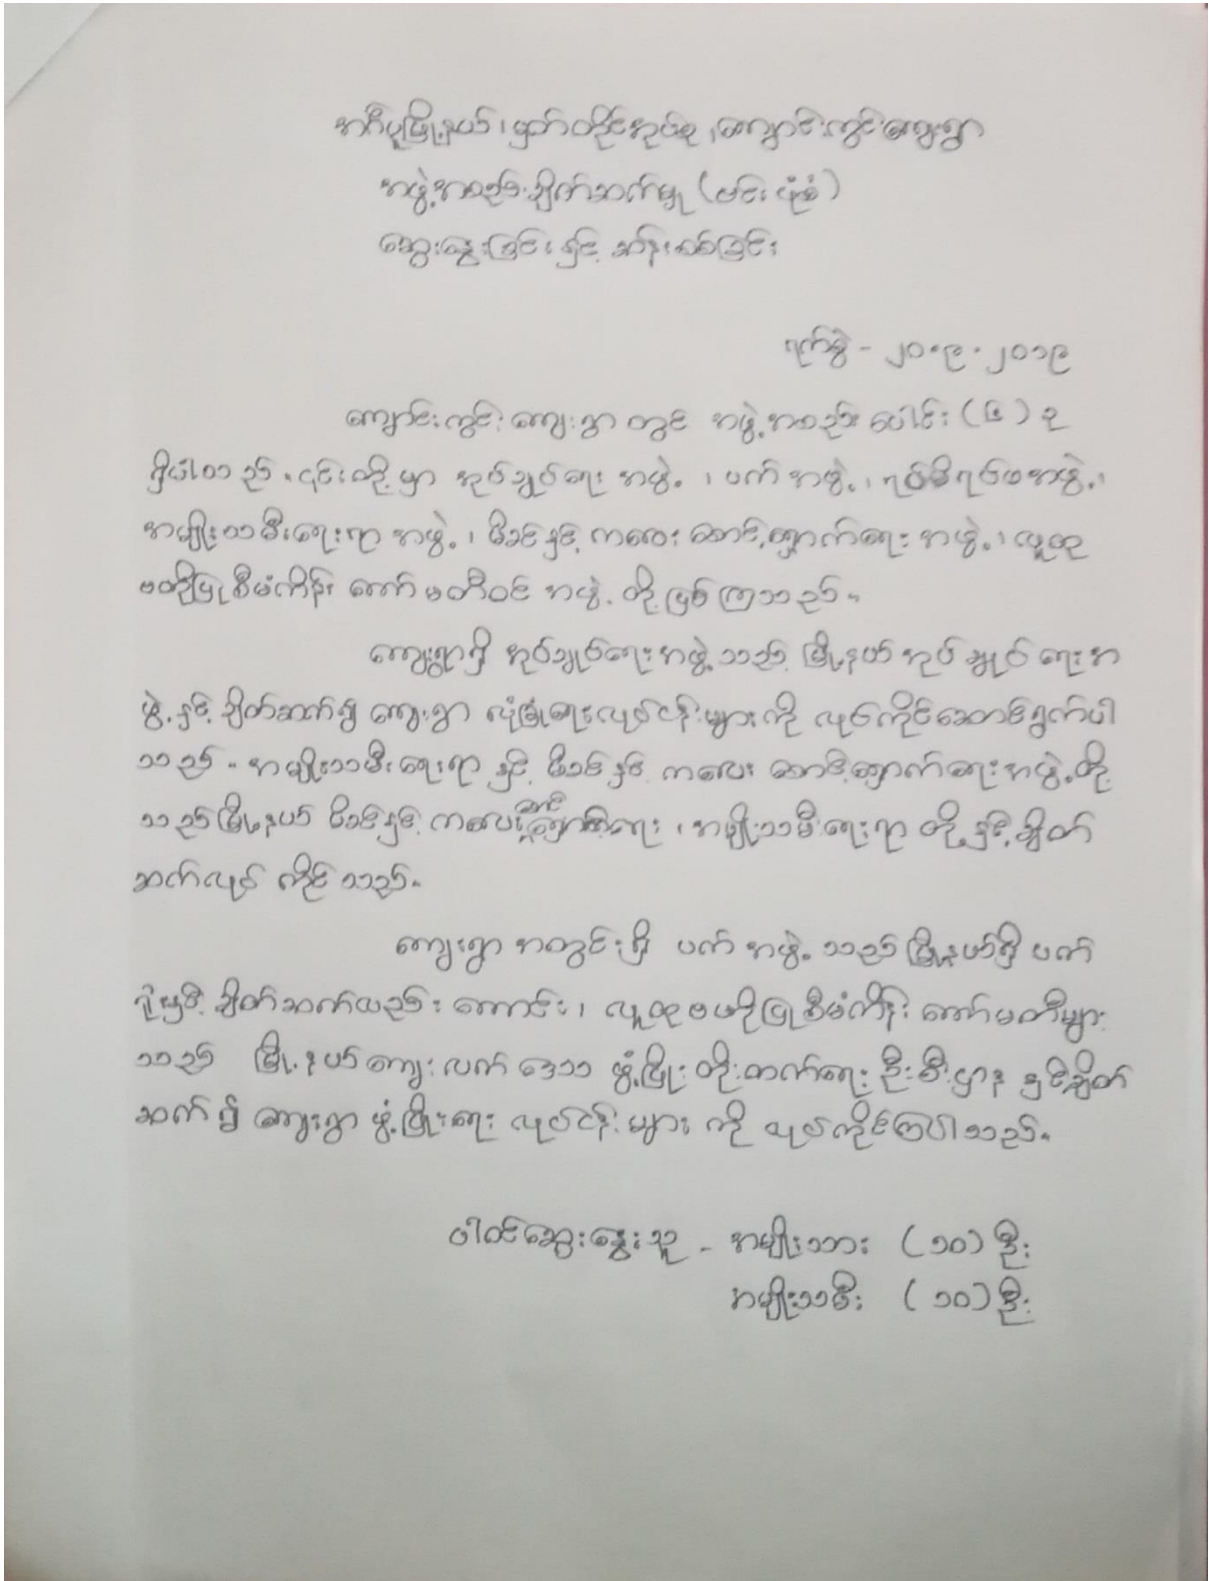 အင်္ဂပူမြို့နယ်၊ မှတ်တိုင်အုပ်စု၊ ကျောင်းကွင်းကျေးရွာ
အဖွဲ့အစည်းချိတ်ဆက်မှု (ဗင်းပုံစံ)
ဆွေးနွေးခြင်းနှင့် ဆန်းစစ်ခြင်း
ရက်စွဲ - ၂၀.၉.၂၀၁၉
ကျောင်းကွင်းကျေးရွာတွင် အဖွဲ့အစည်းပေါင်း (၆) ခု
ရှိပါသည်။ ၎င်းတို့မှာ အုပ်ချုပ်ရေးအဖွဲ့၊ ပက်အဖွဲ့၊ ရပ်မိရပ်ဖအဖွဲ့၊
အမျိုးသမီးရေးရာအဖွဲ့၊ မိခင်နှင့် ကလေးစောင့်ရှောက်ရေးအဖွဲ့၊ လူထု
ဗဟိုပြုစီမံကိန်း ကော်မတီဝင်အဖွဲ့တို့ဖြစ်ကြသည်။
ကျေးရွာရှိ အုပ်ချုပ်ရေးအဖွဲ့သည် မြို့နယ်အုပ်ချုပ်ရေးအ
ဖွဲ့နှင့်ချိတ်ဆက်၍ ကျေးရွာ လုံခြုံရေးလုပ်ငန်းများကို လုပ်ကိုင်ဆောင်ရွက်ပါ
သည်။ အမျိုးသမီးရေးရာနှင့် မိခင်နှင့် ကလေး စောင့်ရှောက်ရေးအဖွဲ့တို့
သည် မြို့နယ် မိခင်နှင့် ကလေးစောင့်ရှောက်ရေး၊ အမျိုးသမီးရေးရာတို့နှင့်ချိတ်
ဆက်လုပ်ကိုင်သည်။
ကျေးရွာအတွင်းရှိ ပက်အဖွဲ့သည် မြို့နယ်ရှိ ပက်
ရုံးနှင့် ချိတ်ဆက်လည်းကောင်း၊ လူထုဗဟိုပြုစီမံကိန်း ကော်မတီများ
သည် မြို့နယ်ကျေးလက်ဒေသ ဖွံ့ဖြိုးတိုးတက်ရေးဦးစီးဌာနနှင့်ချိတ်
ဆက်၍ ကျေးရွာဖွံ့ဖြိုးရေး လုပ်ငန်းများကို လုပ်ကိုင်ကြပါသည်။
ပါဝင်ဆွေးနွေးသူ - အမျိုးသား (၁၀) ဦး
အမျိုးသမီး (၁၀) ဦး